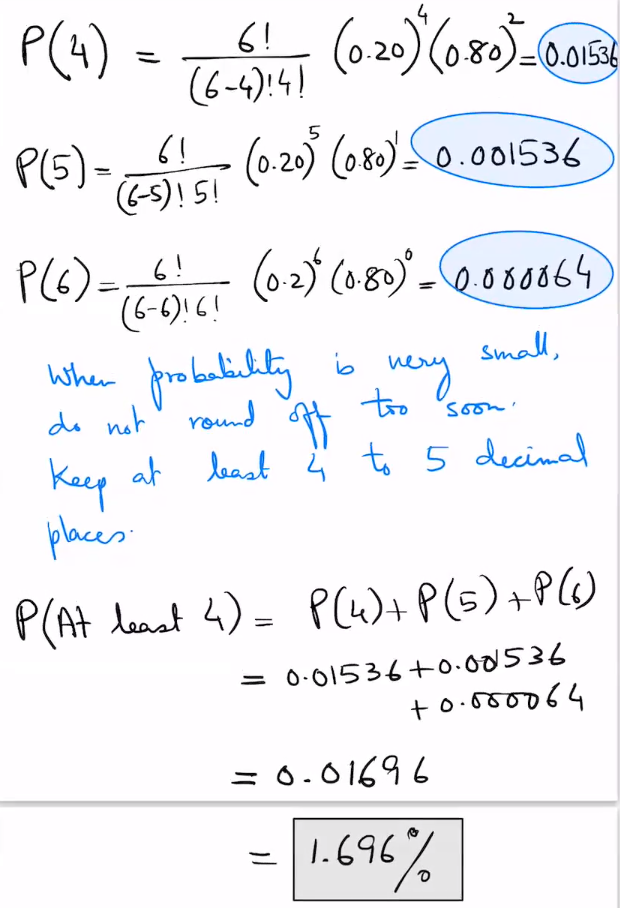 P(4) = 6!/((6-4)!4!) (0.20)^4 (0.80)^2 = 0.01536
P(5) = 6!/((6-5)!5!) (0.20)^5 (0.80)^1 = 0.001536
P(6) = 6!/((6-6)!6!) (0.2)^6 (0.80)^0 = 0.000064
When probability is very small,
do not round off too soon.
Keep at least 4 to 5 decimal
places.
P(At least 4) = P(4) + P(5) + P(6)
= 0.01536 + 0.001536
+ 0.000064
= 0.01696
= 1.696%